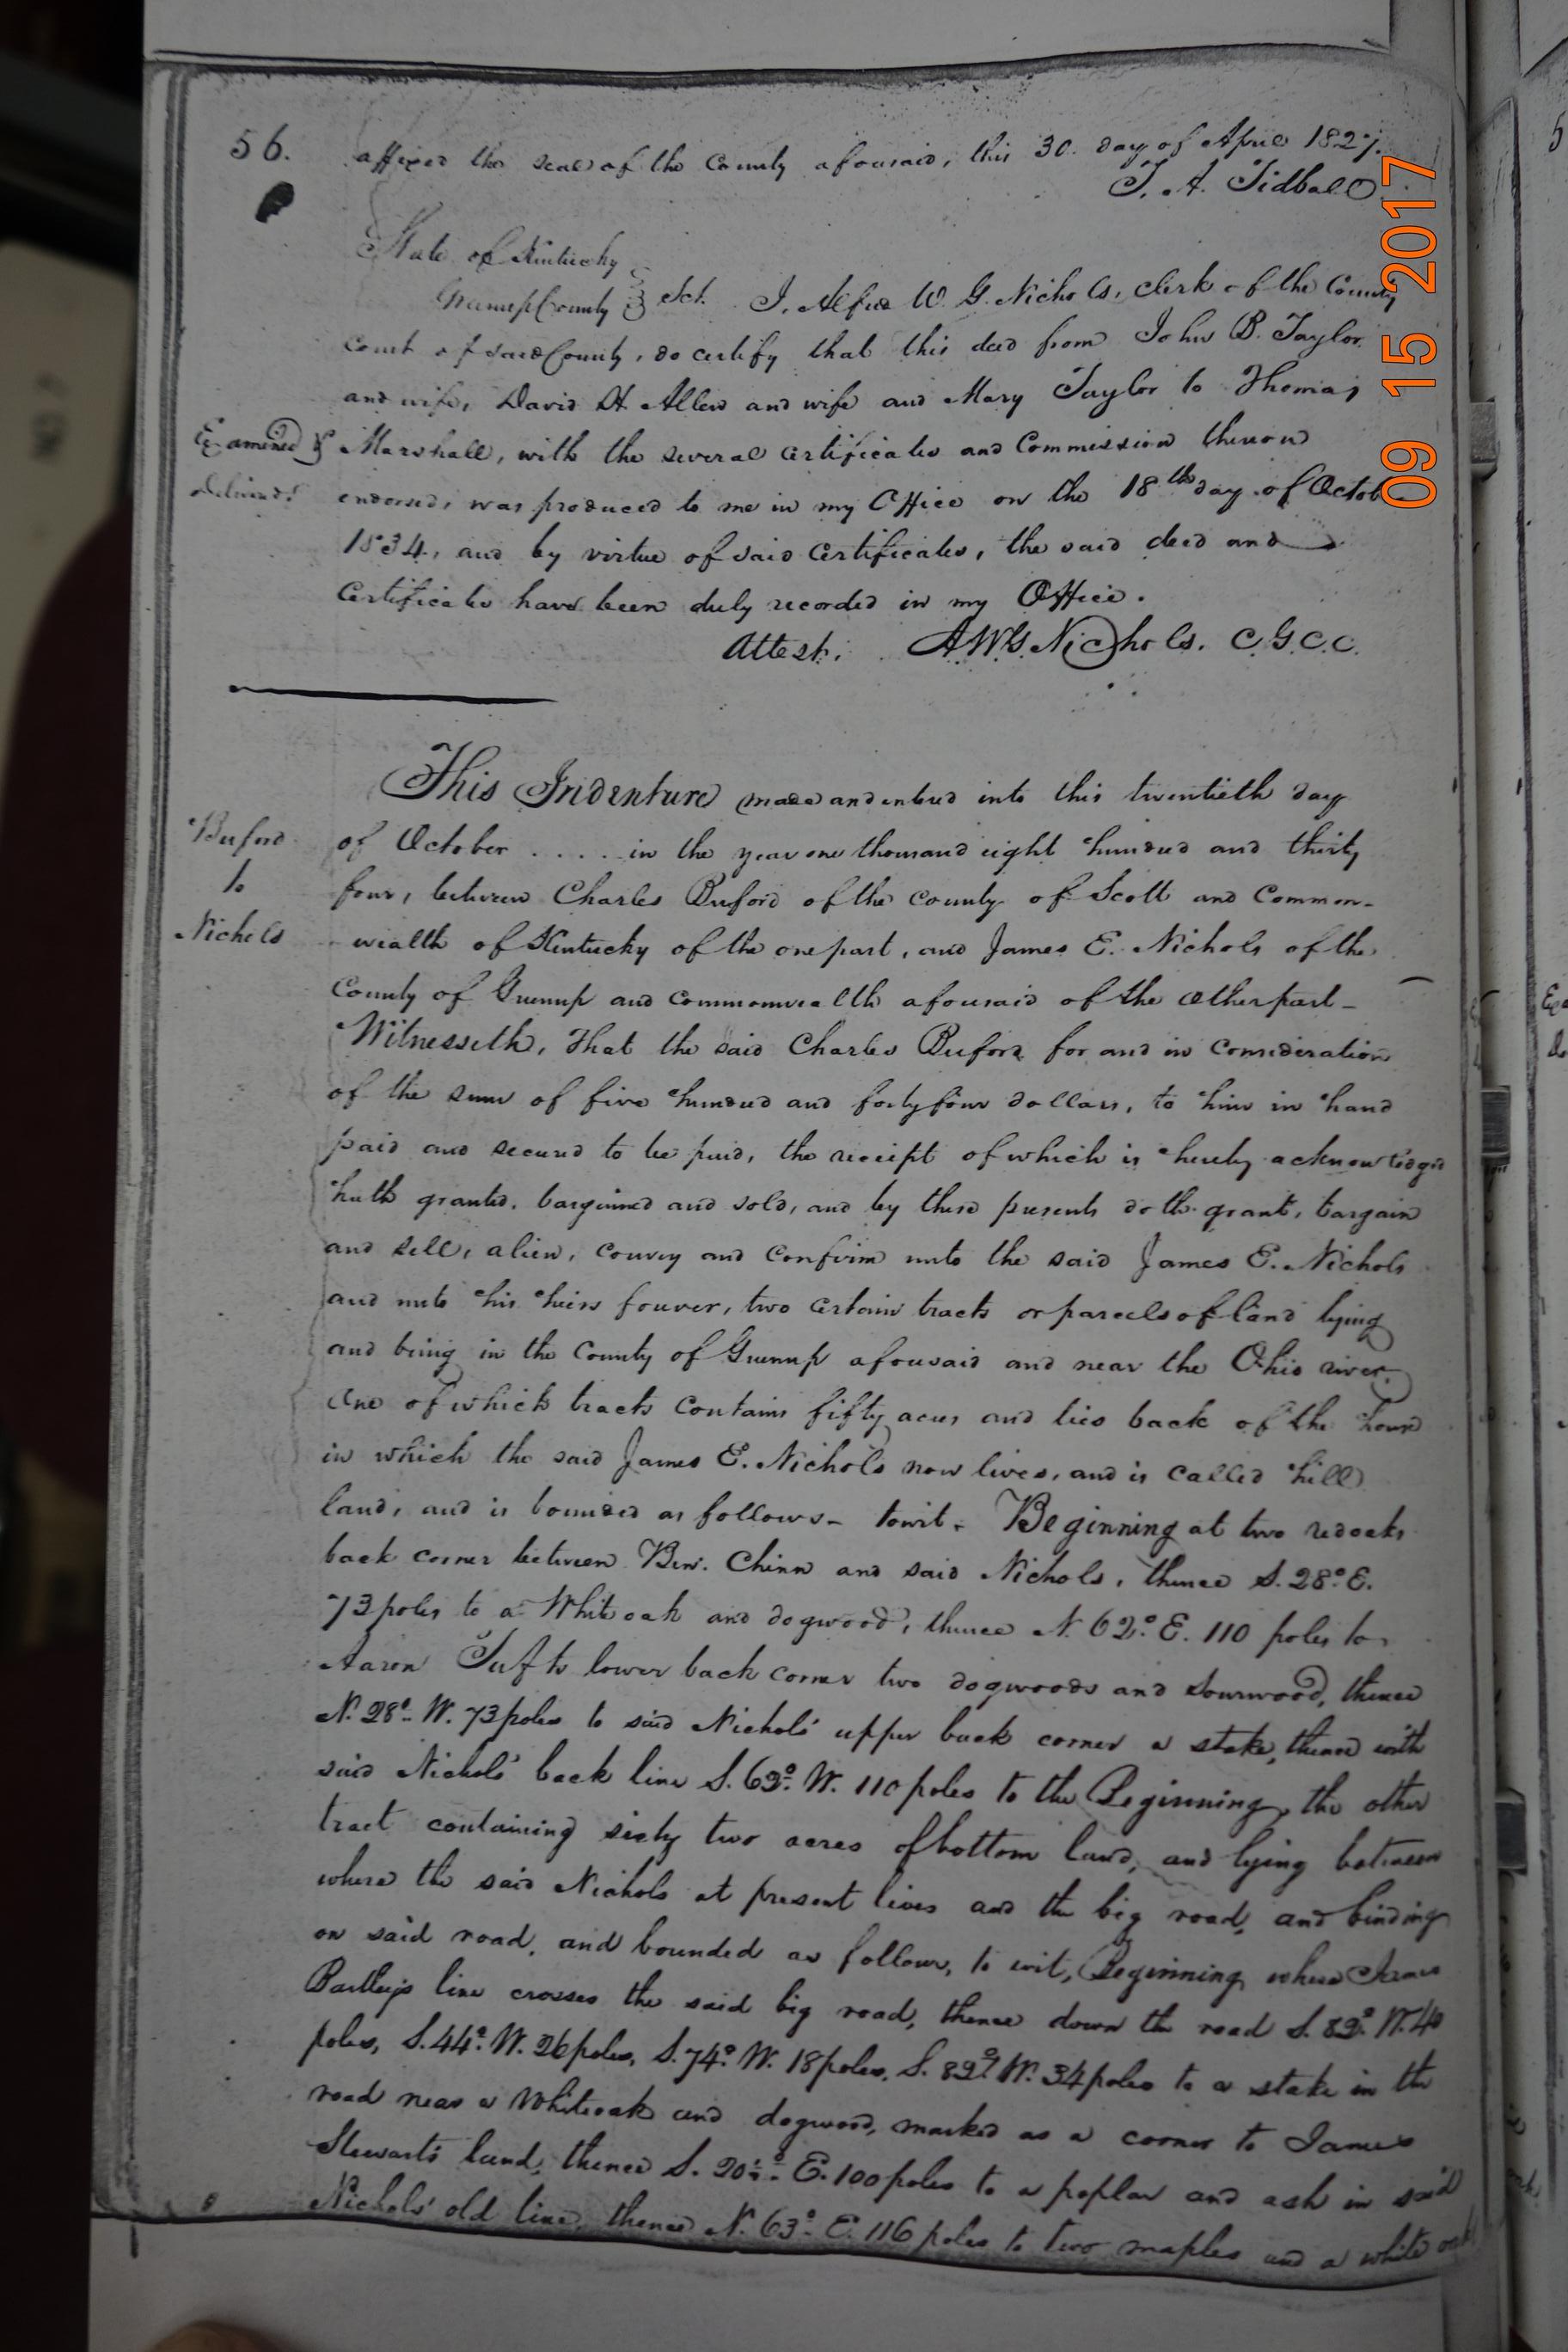 56.
affixed the seal of the County aforesaid, this 30. day of April 1827.
T. A. Tidball
State of Kentucky
Greenup County Sct. I, Alfred W. G. Nichols, clerk of the County
Court of said County, do certify that this deed from John B. Taylor
and wife, David H Allen and wife and Mary Taylor to Thomas
Marshall, with the several certificates and Commission thereon
endorsed, was produced to me in my Office on the 18th day of Octob
1834, and by virtue of said Certificates, the said deed and
Certificates have been duly recorded in my Office.
Attest. AWG Nichols. C.G.C.C.
Examined &
delivered
This Indenture made and entered into this twentieth day
of October ..... in the year one thousand eight hundred and thirty
four, between Charles Buford of the County of Scott and Common-
wealth of Kentucky of the one part, and James E. Nichols of the
County of Greenup and Commonwealth aforesaid of the other part -
Witnesseth, That the said Charles Buford for and in Consideration
of the sum of five hundred and forty four dollars, to him in hand
paid and secured to be paid, the receipt of which is hereby acknowledged
hath granted, bargained and sold, and by these presents doth grant, bargain
and sell, alien, convey and confirm unto the said James E. Nichols
and unto his heirs forever, two certain tracts or parcels of land lying
and being in the County of Greenup aforesaid and near the Ohio river.
One of which tracts contains fifty acres and lies back of the house
in which the said James E. Nichols now lives, and is called hill
land, and is bounded as follows - towit - Beginning at two redoaks
back corner between Ben. Chinn and said Nichols, thence S. 28° E.
73 poles to a Whiteoak and dogwood, thence N. 62° E. 110 poles to
Aaron Tufts lower back corner two dogwoods and Sourwood, thence
N. 28° W. 73 poles to said Nichols' upper back corner a stake, thence with
said Nichols' back line S. 62° W. 110 poles to the Beginning, the other
tract containing sixty two acres of bottom land, and lying between
where the said Nichols at present lives and the big road, and binding
on said road, and bounded as follows, to wit, Beginning where James
Bartley's line crosses the said big road, thence down the road S. 82° W. 40
poles, S. 44° W. 26 poles, S. 74° W. 18 poles, S. 82° W. 34 poles to a stake in the
road near a Whiteoak and dogwood, marked as a corner to James
Stewart's land, thence S. 20½° E. 100 poles to a poplar and ash in said
Nichols' old line, thence N. 63° E. 116 poles to two maples and a white oak
Buford
to
Nichols
09 15 2017